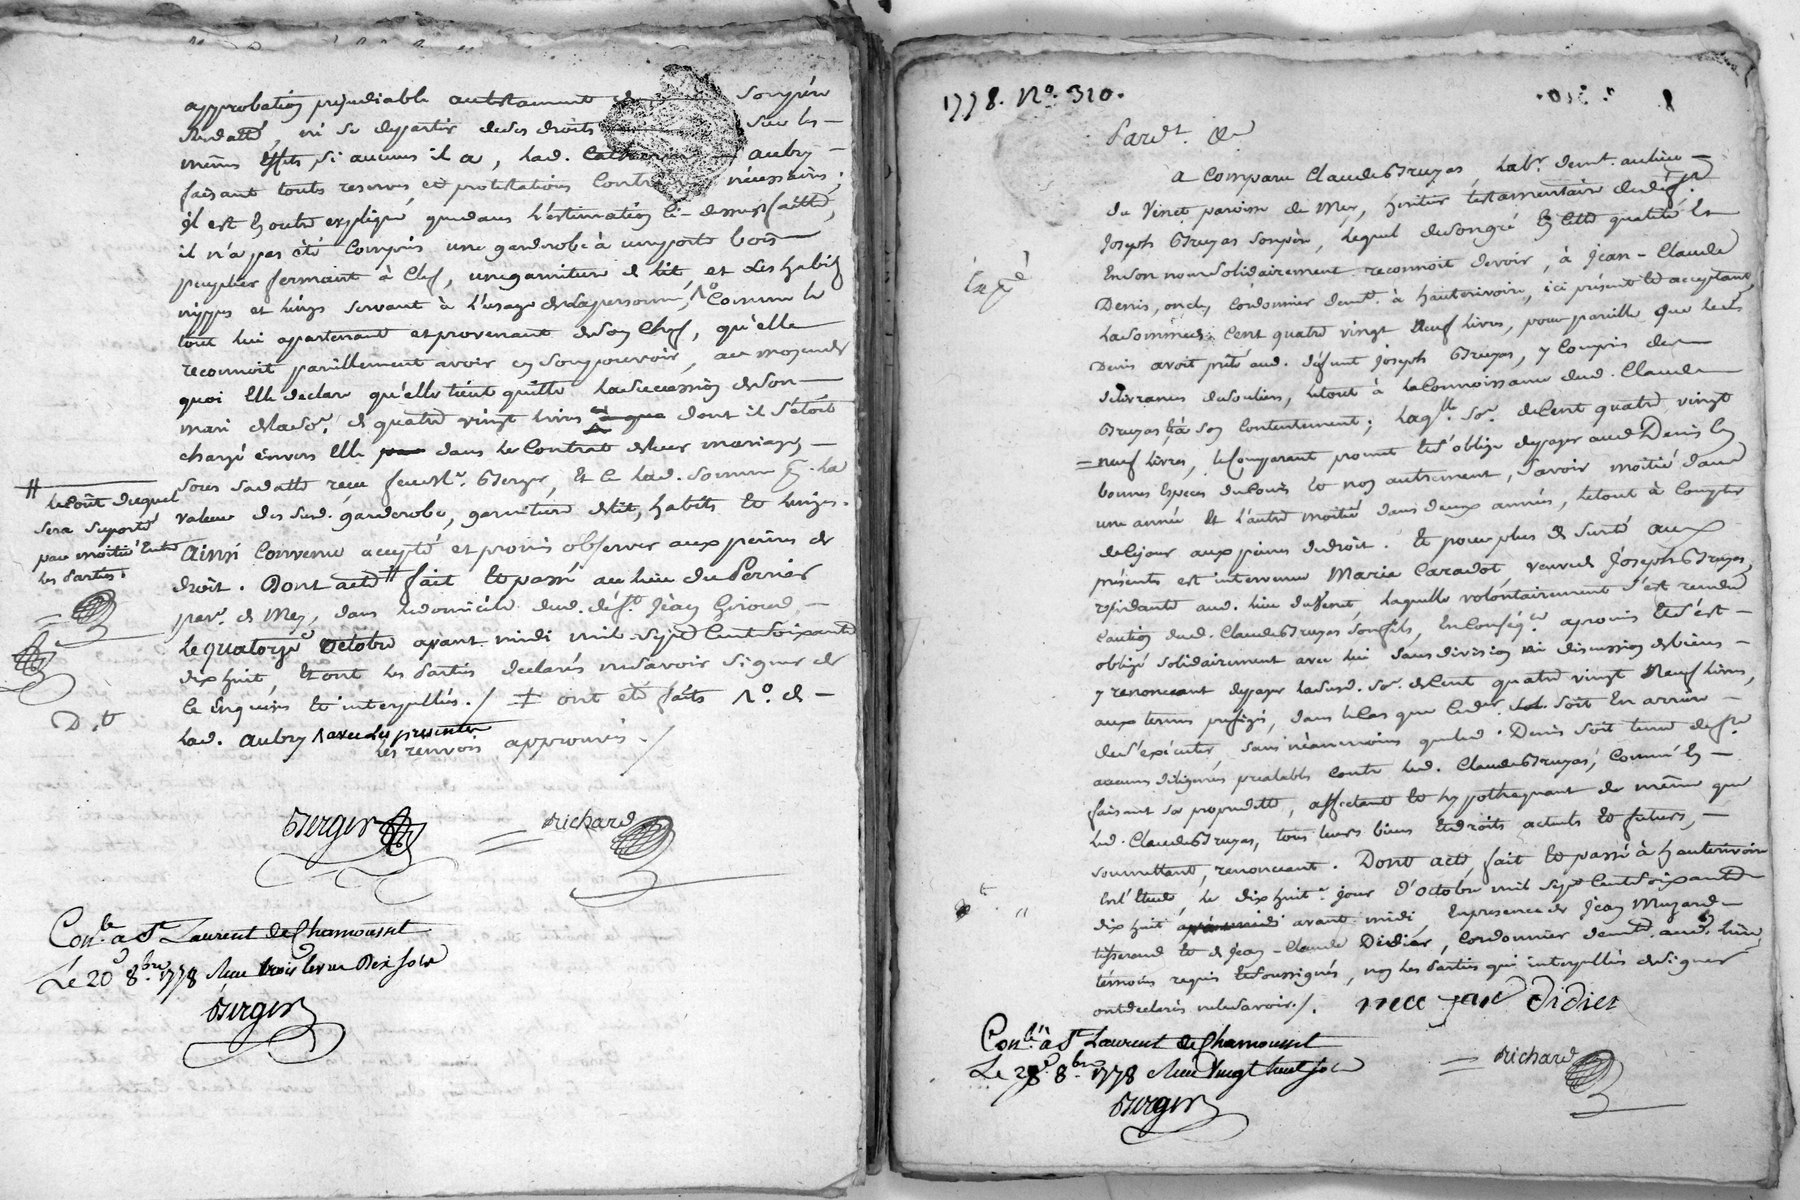 approbation préjudiable autestament de sonpère
susdatté, ni se departir desdes droits sur les
mêmes effets, si aucuns il a, lad. Catherine Aubry
faisant touts reserves et protestations contraires nécessaires.
il est Enoutre expliqué, quedans l'estimation ci-dessus faitte,
il n'a pas été compris une garderobe à uneporte bois
peuplier fermant à clef, unegarniture de lit, et les habits
nippes et linges servant à l'usage delapersonne, No comme le
tout lui apartenant et provenant deson chef, qu'elle
reconnoit pareillement avoir en sonpouvoir, au moyende
quoi Elle declare qu'elle tient quitte lasuccession deson
mari delaso.e de quatre vingt livres dont il s'étoit
chargé envers Elle dans le Contrat deleur mariage
sous sadatte reçu feu Mr. Berger, Et ce lad. somme pr. la
valeur des susd. garderobe, garniture delit, habits et linges.
Ainsi convenu accepté et promis observer aux peines de
droit. Dont acte # fait et passé au lieu du Perrier
par.e de Mey, dans ledomicile dud. déft. Jean Giroud,
le quatorze octobre avant midi mil sept cent soixante
dix huit Et ont les Parties declarés nesavoir signer de
ce Enquises et interpellés./ ont été faits No. de
lad. Aubry avec les presentes
les renvois approuvés./
# le coût duquel
sera suporté
par moitié Entre
les Parties.
D.t
Berger
= Richard
Con.lé à St Laurent de Chamousset
Le 20 8bre 1778 Reçu trois livres Dix sols
Berger
1778. No. 310.
Pardt. &e
A Comparu Claude Bruyas, labr. demt. aulieu
du Vinet paroisse de Mey, heritier testamentaire dudéft.
Joseph Bruyas sonpère, lequel desongré En cette qualité Et
Enson nom solidairement reconnoit devoir, à Jean-Claude
Denis, oncle, cordonnier demt. à hauterivoire, ici présent et acceptant,
lasommede cent quatre vingt neuf livres, pour pareille que led.
Denis avoit prêté aud. défunt Joseph Bruyas, y compris des
délivrances desouliers, letout à laconnoissance dud. Claude
Bruyas, Et à son contentement; laqlle. so.e decent quatre vingt
= neuf livres, le Comparant promet Et s'oblige depayer aud. Denis En
bonnes Especes decours et non autrement, savoir moitié dans
une année Et l'autre moitié dans deux années, letout à compter
decejour aux peines dedroit. Et pour plus de sureté aux
présentes est intervenue Marie Caradot veuvede Joseph Bruyas,
residante aud. lieu duVinet, laquelle volontairement s'est rendue
caution dud. Claude Bruyas sonfils, En conséq.ce a promis Et s'est
obligé solidairement avec lui sans division ni discussion debiens
y renonceant depayer lasusd. so.e decent quatre vingt neuf livres,
aux termes prefigés, dans lecas que cedr. soit En arrière
des'exécuter, sans néanmoins queled. Denis soit tenu defre.
aucunes diligences prealables contre led. Claude Bruyas, comme En
faisant sa propredette, affectant et hypothequant de même que
led. Claude Bruyas, tous leurs biens Et droits actuels et futurs,
soumettant, renonceant. Dont acte, fait et passé à hauterivoire
En l'Etude, le dix huite. jour d'octobre mil sept cent soixante
dix huit avant midi En presence de Jean Muzard
tisserand et de Jean-Claude Didier, cordonnier demt. aud. lieu,
témoins requis Et soussignés, non les Parties qui interpellés designer
ont declarés nelesavoir./.
Didier
Con.lé à St Laurent de Chamousset
Le 28 8bre 1778 Reçu Vingt huit sols
= Richard
Berger